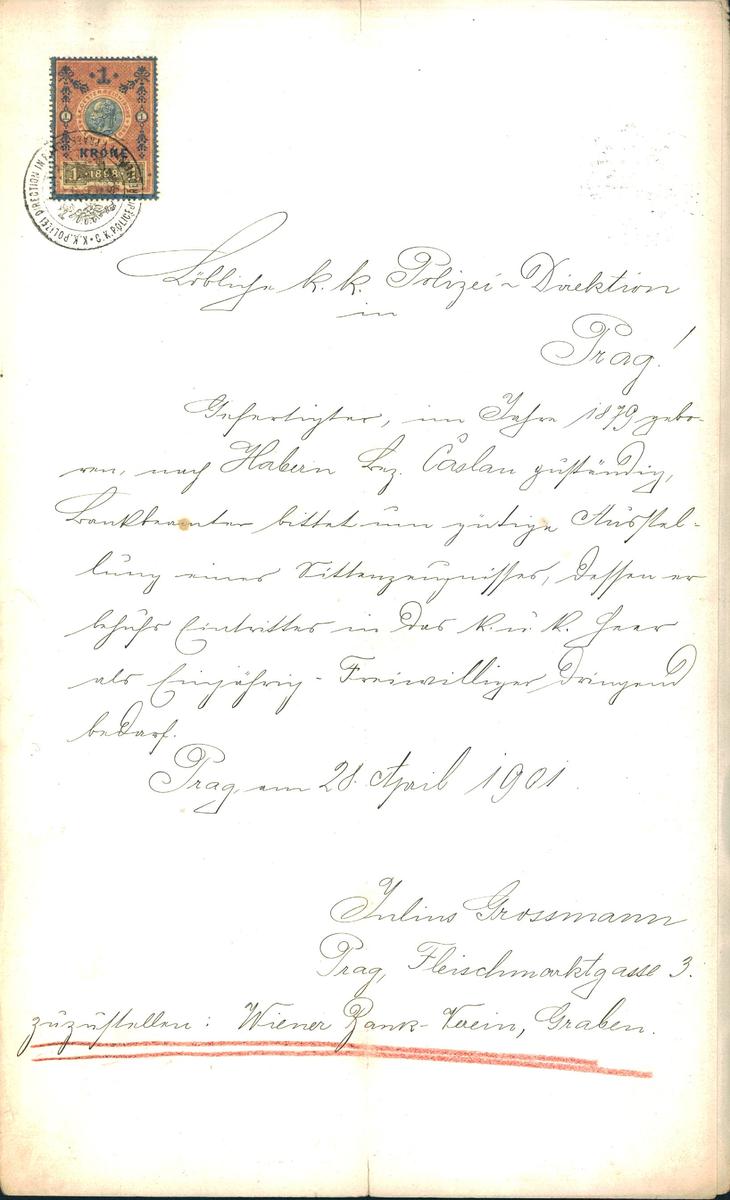 1
1 1
KRONE
1 1898 1
K.K. POLIZEI DIRECTION IN PRAG • C.K. POLICEJNÍ
Löbliche k. k. Polizei-Direktion
in
Prag!
Gefertigter, im Jahre 1879 gebo-
ren, nach Habern Bez. Čáslau zuständig,
Bankbeamter bittet um gütige Ausstel-
lung eines Sittenzeugnisses, dessen er
behufs Eintrittes in das k. u. k. Heer
als Einjährig-Freiwilliger dringend
bedarf.
Prag, am 28. April 1901.
Julius Grossmann
Prag, Fleischmarktgasse 3.
zuzustellen: Wiener Bank-Verein, Graben.